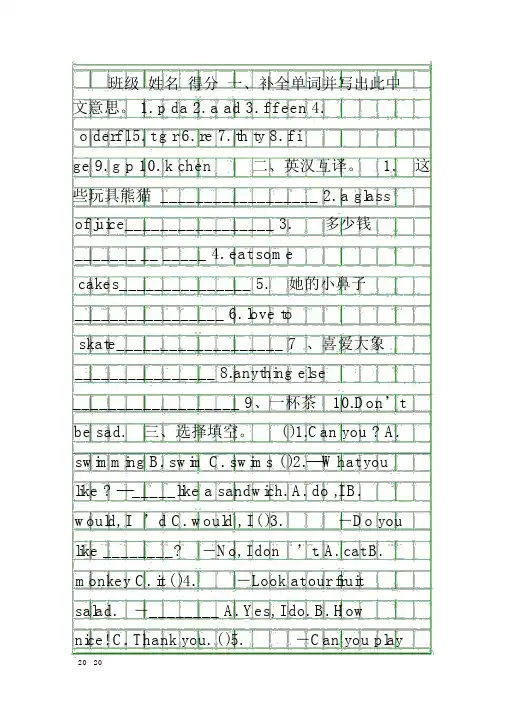 班级 姓名 得分 一、补全单词并写出此中
文意思。 1. p da 2. a ad 3. f feen 4.
o derfl 5. t g r 6. re 7. th ty 8. f i
ge 9. g p 10. k chen 二、英汉互译。 1、 这
些玩具熊猫 __________________ 2. a glass
of juice_________________ 3. 多少钱
_______ __ _____ 4. eat some
cakes_______________ 5. 她的小鼻子
_________________ 6. love to
skate___________________ 7 、喜爱大象
________________ 8.anything else
___________________ 9、一杯茶 10.Don’t
be sad. 三、选择填空。 ()1.Can you ? A.
swimming B. swim C. swims ()2.—What you
like ? —_____like a sandwich. A. do ,I B.
would, I ’d C. would, I ()3. —Do you
like ________? —No, I don ’t A. cat B.
monkey C. it ()4. —Look at our fruit
salad. —________ A. Yes, I do. B. How
nice! C. Thank you. ()5. —Can you play
20 20